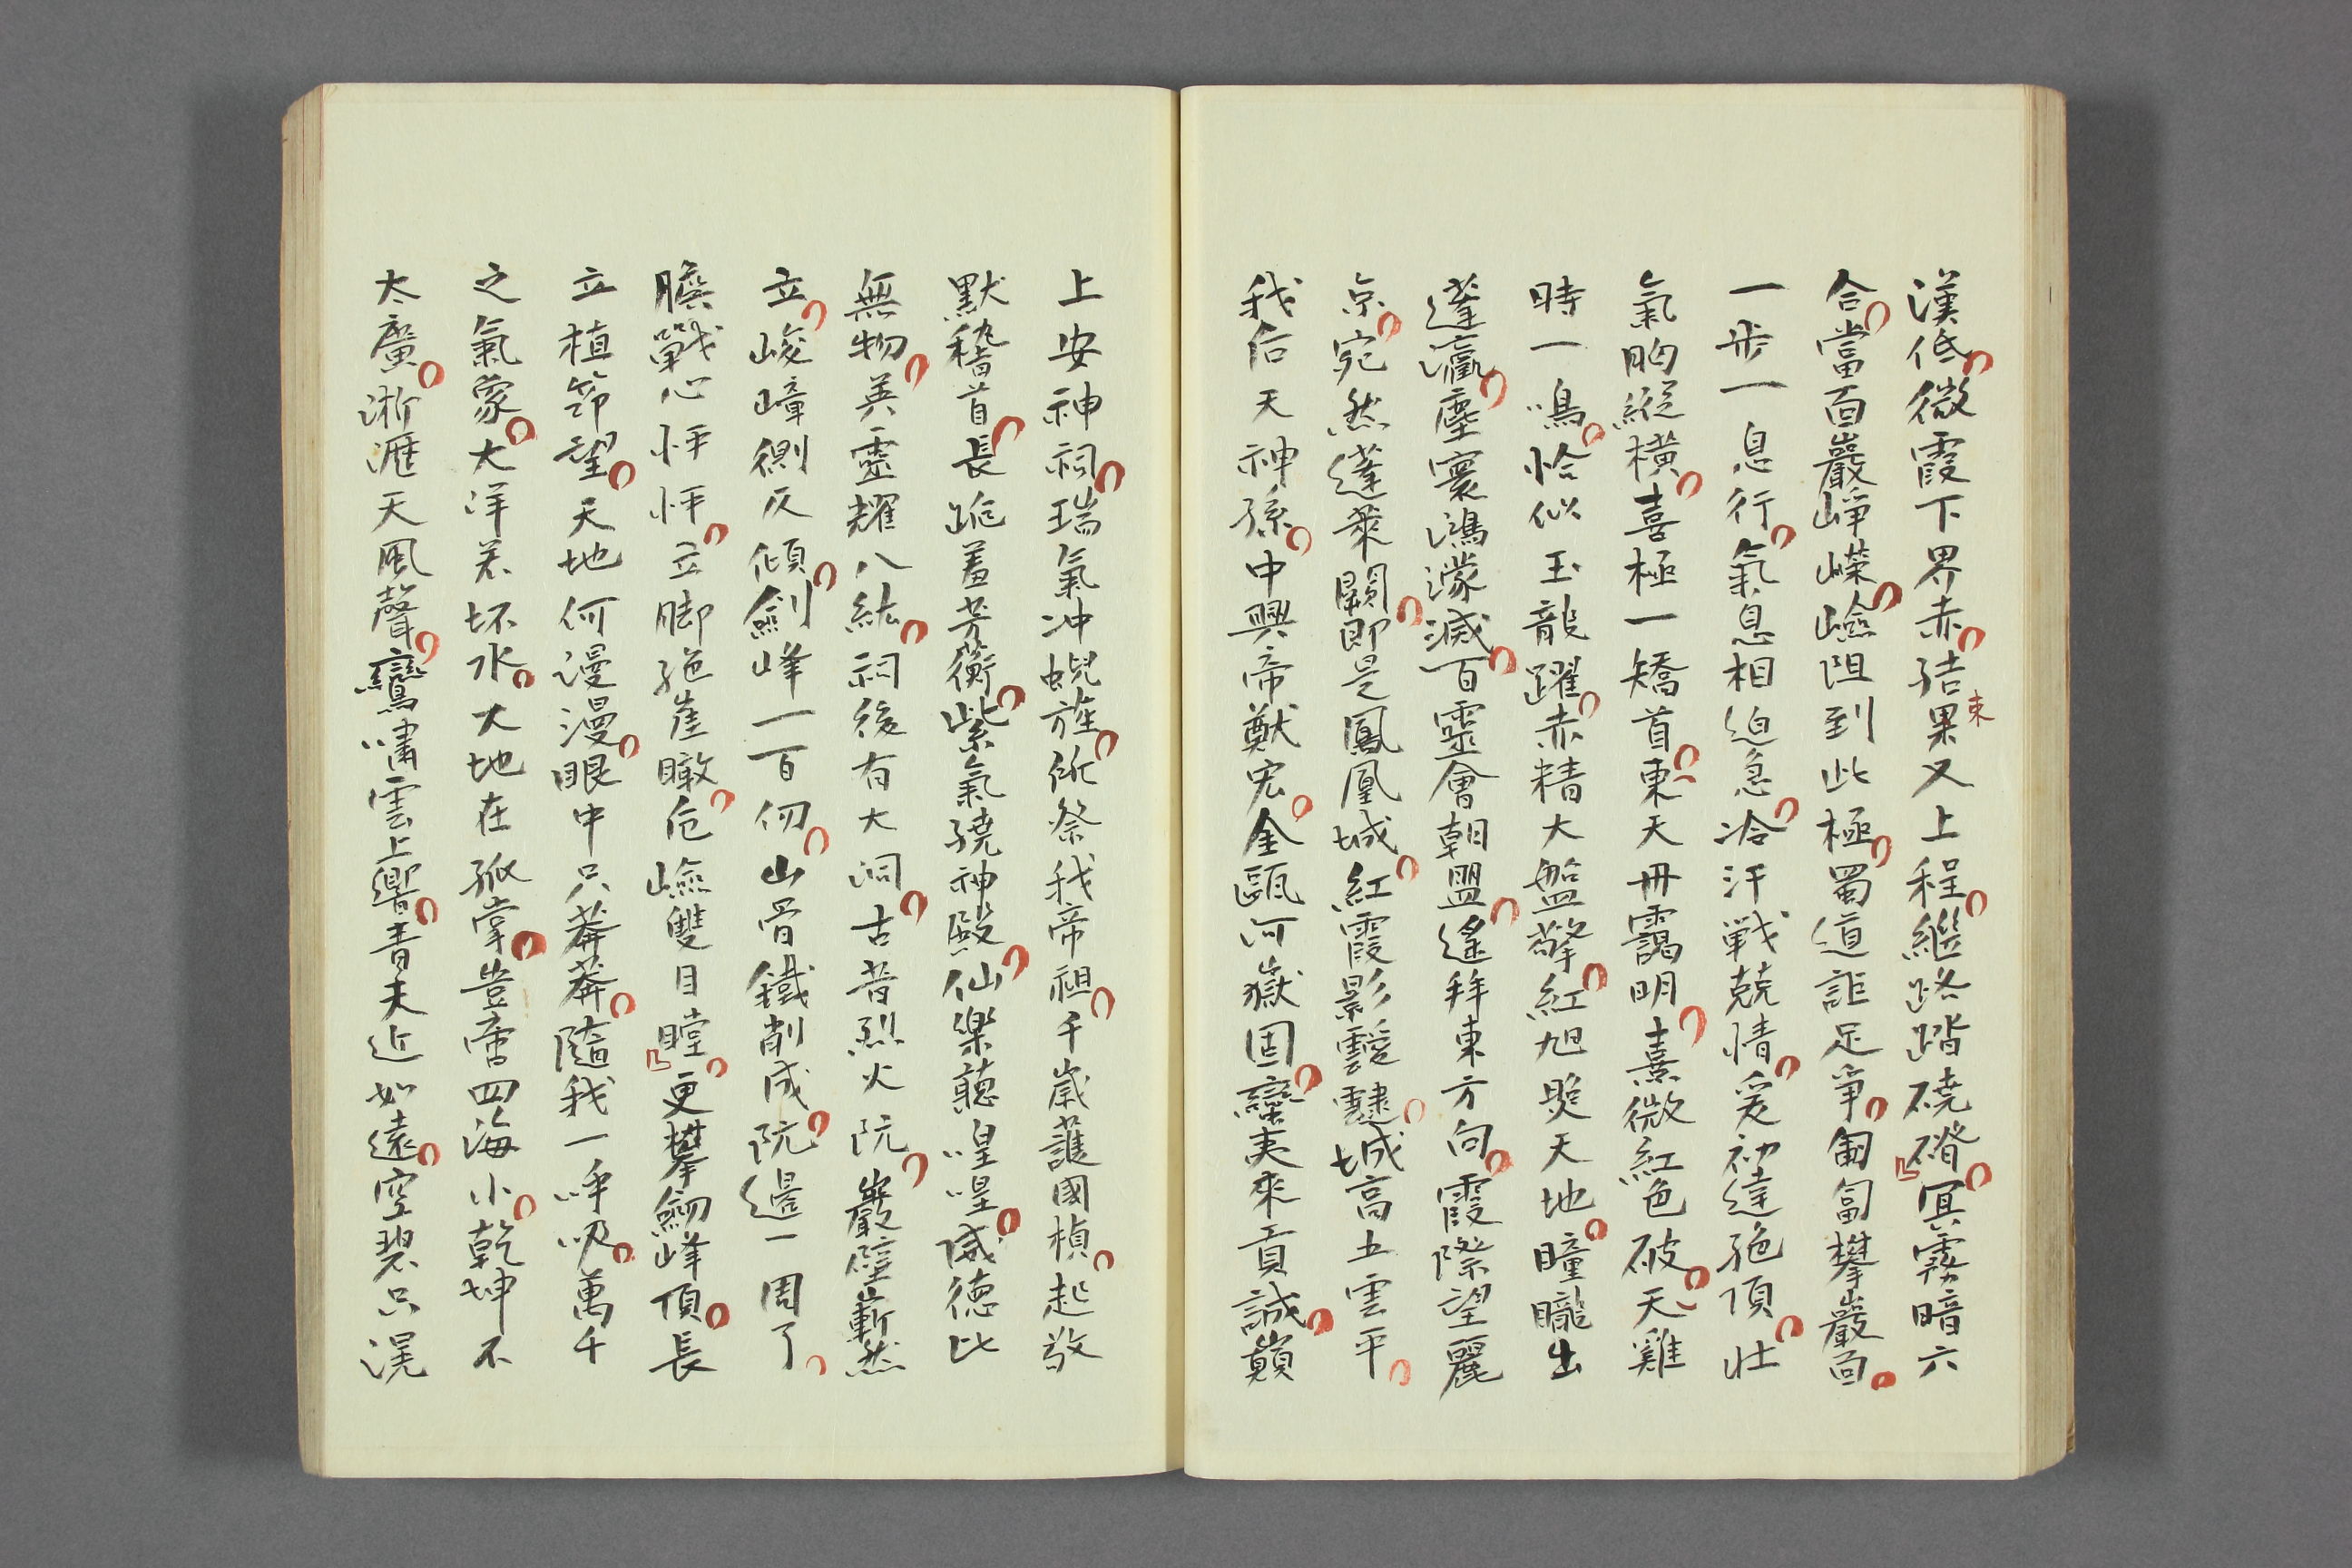 漢低微霞下界赤結果又上程繼路踏磽磆冥霧暗六
束
合當面巖崢嶸嶮阻到此極蜀道詎足爭匍匐攀巖面
一步一息行氣息相迫急冷汗戦兢情爰初達絶頂壯
氣胸縱橫喜極一矯首東天冊靄明熹微紅色破天雞
時一鳴恰似玉龍躍赤精大盤擎紅旭煚天地瞳朧出
蓬瀛塵寰鴻濛滅百靈會朝盟遙拜東方向霞際望麗
京宛然蓬萊闕即是鳳凰城紅霞影靉靆城高五雲平
我后天神孫中興帝猷宏金甌河嶽固蠻夷來貢誠巔
上安神祠瑞氣冲蜺旌所祭我帝祖千歳護國楨起敬
默稽首長跪羞芳蘅紫氣繞神殿仙樂聽喤喤威徳比
無物英靈耀八紘祠後有大洞古昔烈火阬巖壁嶄然
立峻嶂側仄傾劍峰一百仞山骨鐵削成阬邊一周了
膽戰心怦怦立脚絶崖瞰危嶮雙目瞠更攀劒峰頂長
立植笻望天地何漫漫眼中只莽莽隨我一呼吸萬千
之氣象大洋若坏水大地在孤掌豈啻四海小乾坤不
太廣淅瀝天風聲鸞嘯雲上響青天近如遠空碧只滉